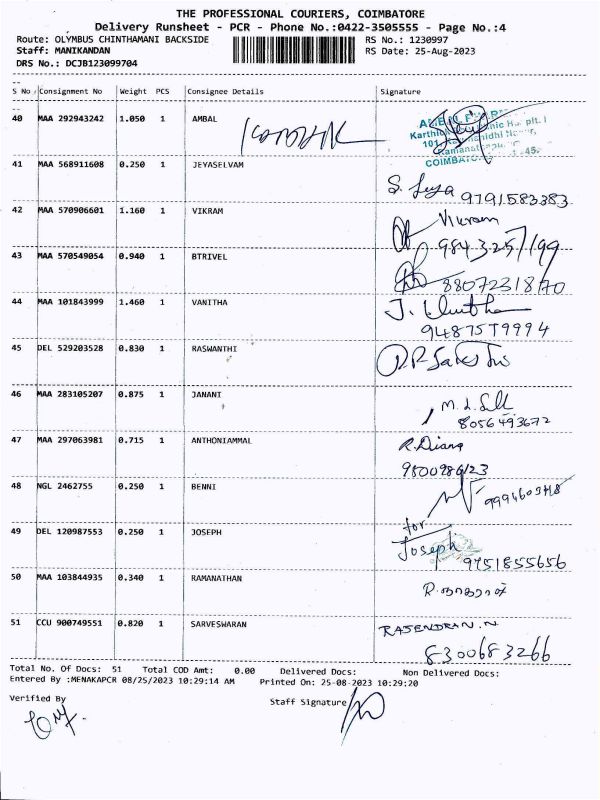 THE PROFESSIONAL COURIERS, COIMBATORE
Delivery Runsheet - PCR - Phone No.:0422-3505555 - Page No.:4
Route: OLYMBUS CHINTHAMANI BACKSIDE RS No.: 1230997
Staff: MANIKANDAN RS Date: 25-Aug-2023
DRS No.: DCJB123099704
S No Consignment No Weight PCS Consignee Details Signature
40 MAA 292943242 1.050 1 AMBAL
COIMBATORE 45.
41 MAA 568911608 0.250 1 JEYASELVAM
S. Jeya 9791583383
42 MAA 570906601 1.160 1 VIKRAM
Vikram
9843257199
43 MAA 570549054 0.940 1 BTRIVEL
8807231870
44 MAA 101843999 1.460 1 VANITHA
J. Vanitha
9487579994
45 DEL 529203528 0.830 1 RASWANTHI
46 MAA 283105207 0.875 1 JANANI
8056493672
47 MAA 297063981 0.715 1 ANTHONIAMMAL
R. Diana
48 NGL 2462755 0.250 1 BENNI
49 DEL 120987553 0.250 1 JOSEPH
for
Joseph
9751855656
50 MAA 103844935 0.340 1 RAMANATHAN
51 CCU 900749551 0.820 1 SARVESWARAN
RAJENDRAN.N
8300683266
Total No. Of Docs: 51 Total COD Amt: 0.00 Delivered Docs: Non Delivered Docs:
Entered By :MENAKAPCR 08/25/2023 10:29:14 AM Printed On: 25-08-2023 10:29:20
Verified By Staff Signature